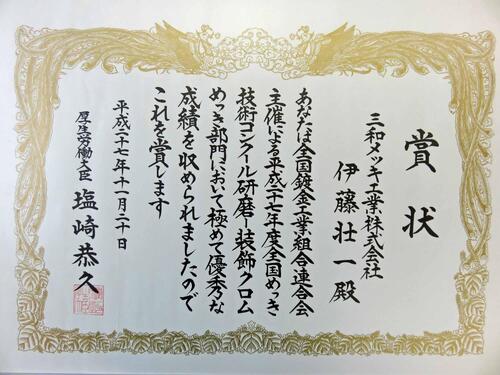 賞状
三和メッキ工業株式会社
伊藤壮一殿
あなたは全国鍍金工業組合連合会
主催による平成二十七年度全国めっき
技術コンクール研磨-装飾クロム
めっき部門において極めて優秀な
成績を収められましたので
これを賞します
平成二十七年十一月二十日
厚生労働大臣 塩崎恭久